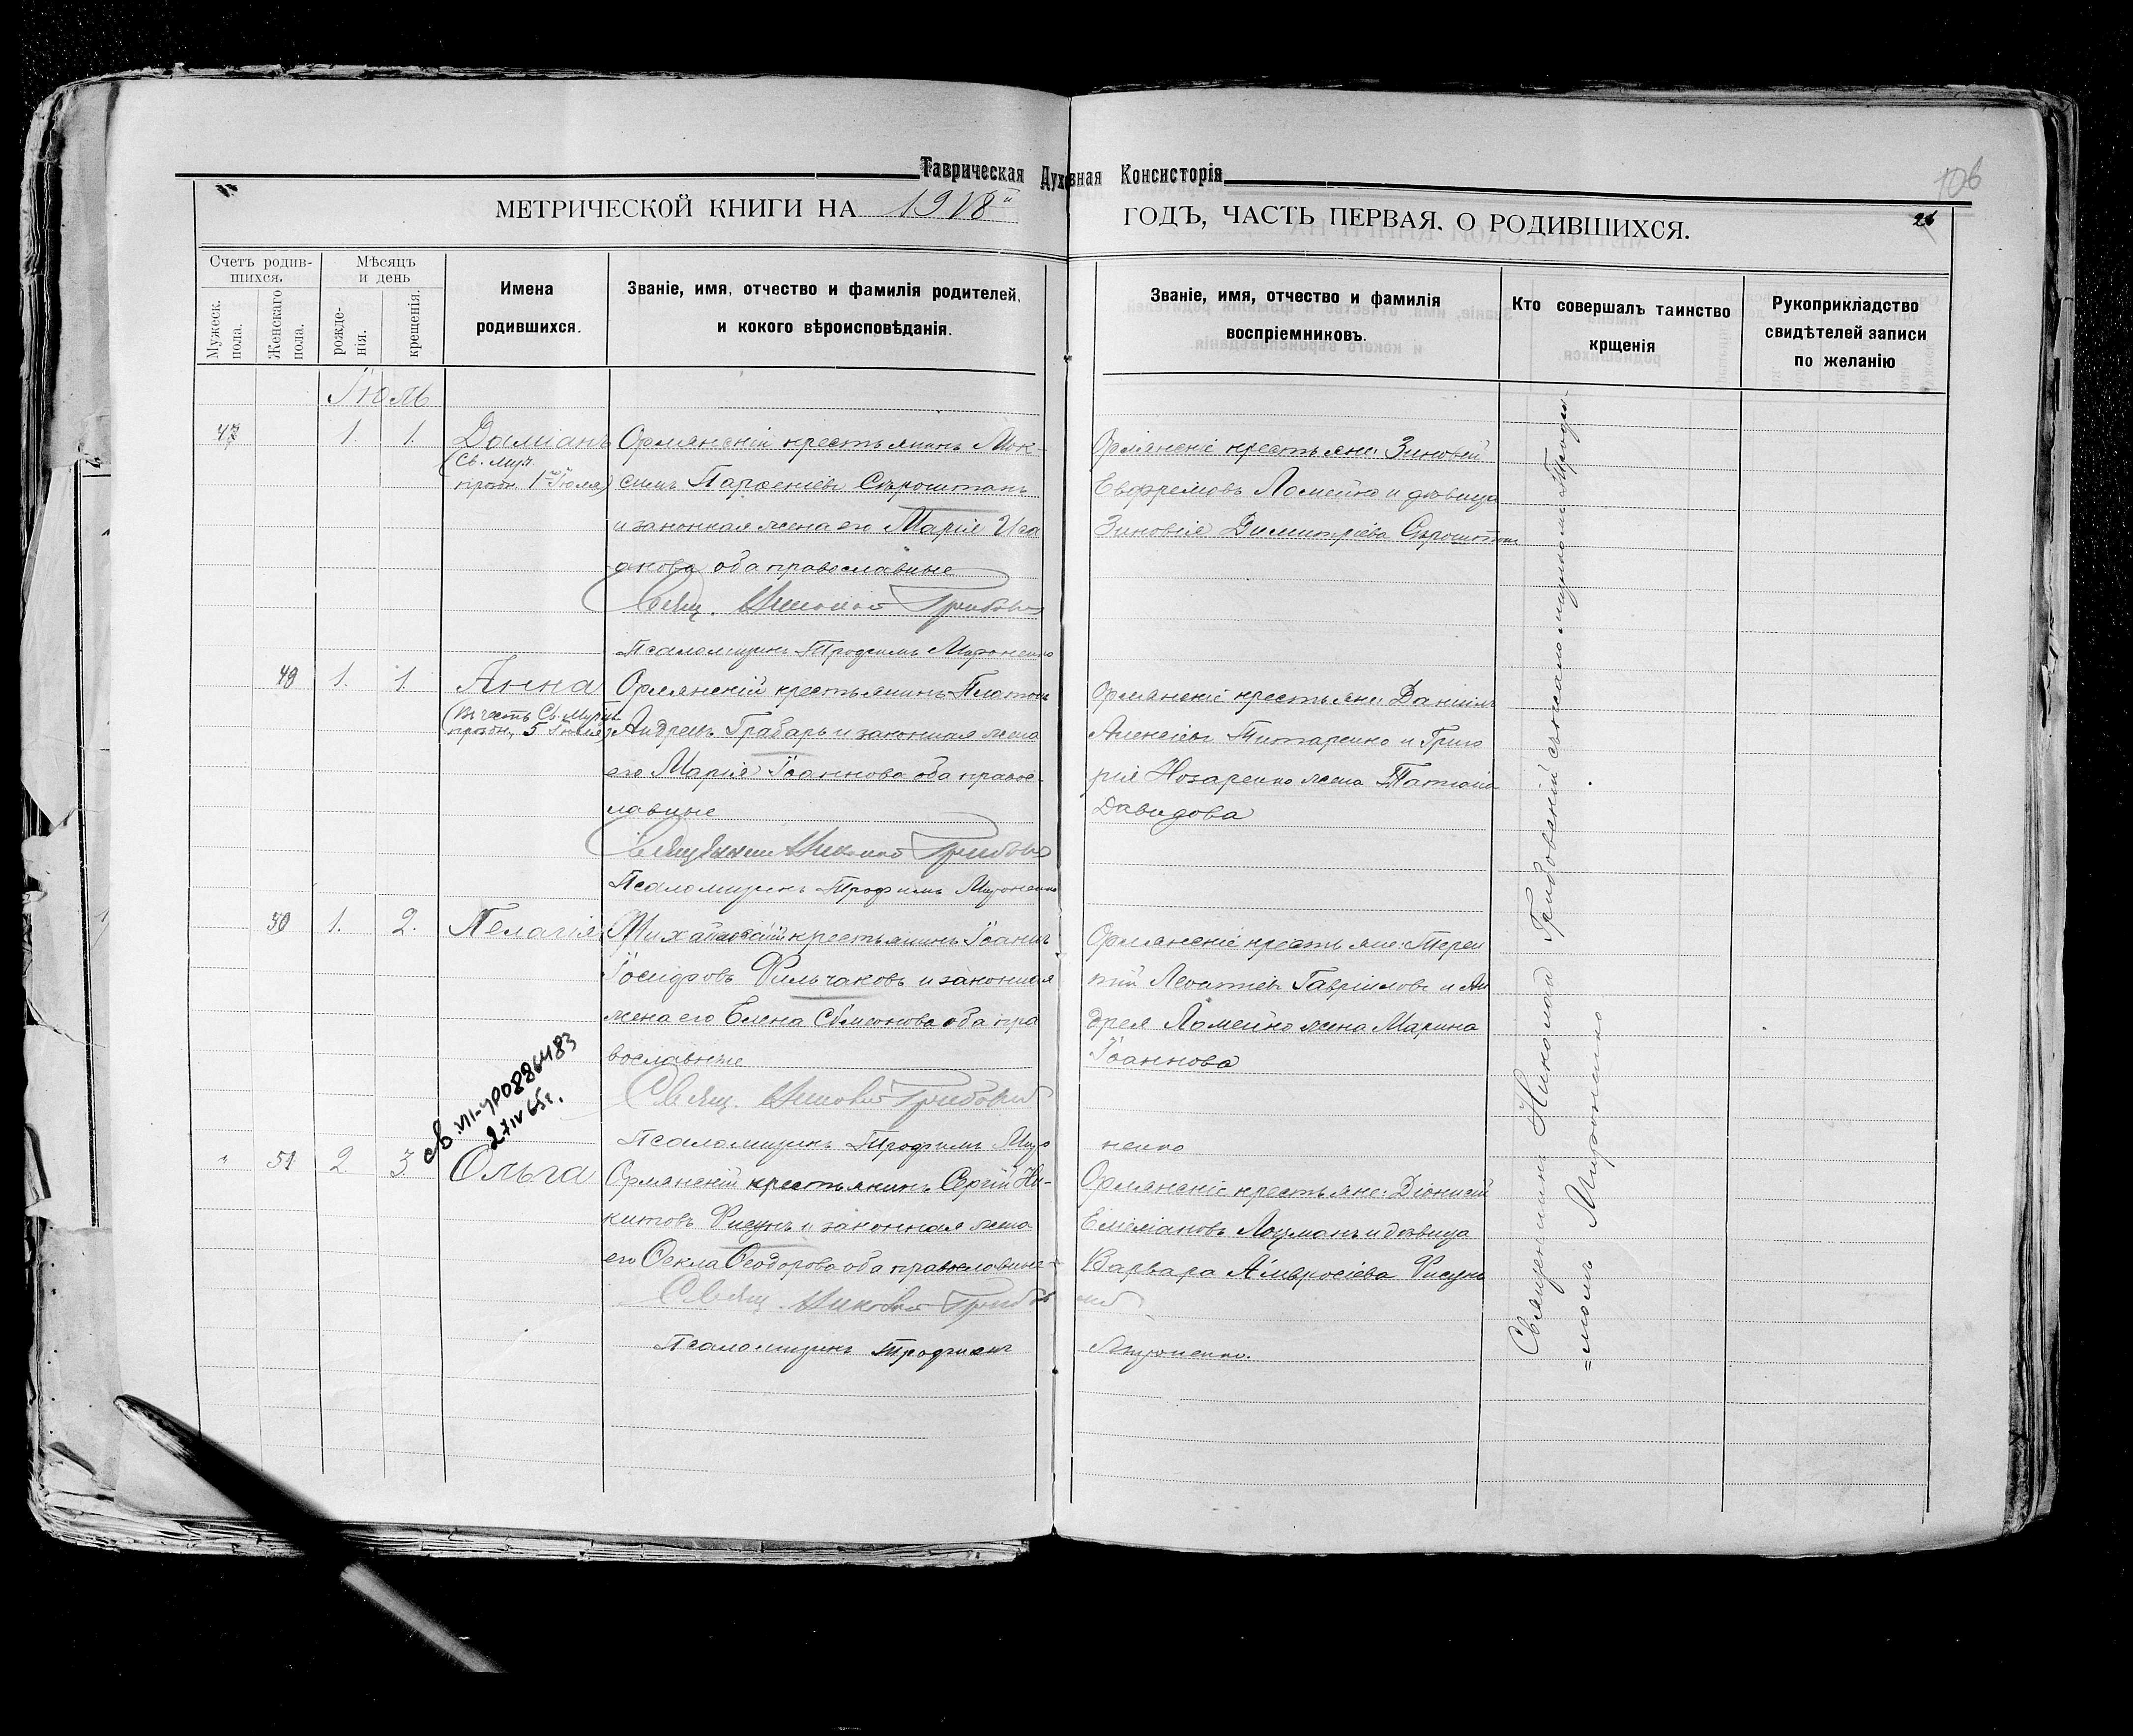 Таврическая Духовная Консисторія
106
МЕТРИЧЕСКОЙ КНИГИ НА 1918 ГОДЪ, ЧАСТЬ ПЕРВАЯ. О РОДИВШИХСЯ.
26
Счетъ родив-
шихся.
Мужеск.
пола.
Женскаго
пола.
Мѣсяцъ
и день
рожде-
нія.
крещенія.
Имена
родившихся.
Званіе, имя, отчество и фамилія родителей,
и кокого вѣроисповѣданія.
Званіе, имя, отчество и фамилія
воспріемниковъ.
Кто совершалъ таинство
крщенія
Рукоприкладство
свидѣтелей записи
по желанію
Іюль
47 1. 1. Даміанъ
(Св. муч.
празн. 1 Іюля)
Орлянскій крестьянинъ Мак-
симъ Парѳеніевъ Сѣроштанъ
и законная жена его Марія Иса
акова оба православные
Свящ. Николай Грибов
Псаломщикъ Трофимъ Мироненко
Орлянскіе крестьяне: Зиновій
Евфремовъ Ломейко и дѣвица
Зиновія Димитріева Сѣроштанъ
49 1. 1 Анна
(Въ честь Св.
празн. 5 Іюля)
Орлянскій крестьянинъ Платонъ
Андреевъ Грабарь и законная жена
его Марія Іоаннова оба правос-
лавные
Священникъ Николай Грибов
Псаломщикъ Трофимъ Мироненко
Орлянскіе крестьяне: Даніилъ
Алексіевъ Титаренко и Григо
рія Назаренко жена Татіана
Давидова
50 1. 2. Пелагія
Михайловскій крестьянинъ Іоаннъ
Іосифовъ Фильчаковъ и законная
жена его Елена Сѵмеонова оба пра
вославные
Свящ. Николай Грибовскій
Псаломщикъ Трофимъ Миро
ненко
Орлянскіе крестьяне: Терен
тій Леонтіевъ Гавріиловъ и Ан
дрея Ломейко жена Марина
Іоаннова
св. VIII-УР0886483
27 IV 65г.
" 51 2 3 Ольга
Орлянскій крестьянинъ Сергій Ни-
китовъ Рисунъ и законная жена
его Ѳекла Ѳеодорова оба православные
Свящ. Николай Грибовскій
Псаломщикъ Трофимъ Мироненко.
Орлянскіе крестьяне: Діонисій
Емеліановъ Лоцманъ и дѣвица
Варвара Амвросіева Рисунъ
Священникъ Николай Грибовскій съ псаломщикомъ Трофи-
=момъ Мироненко